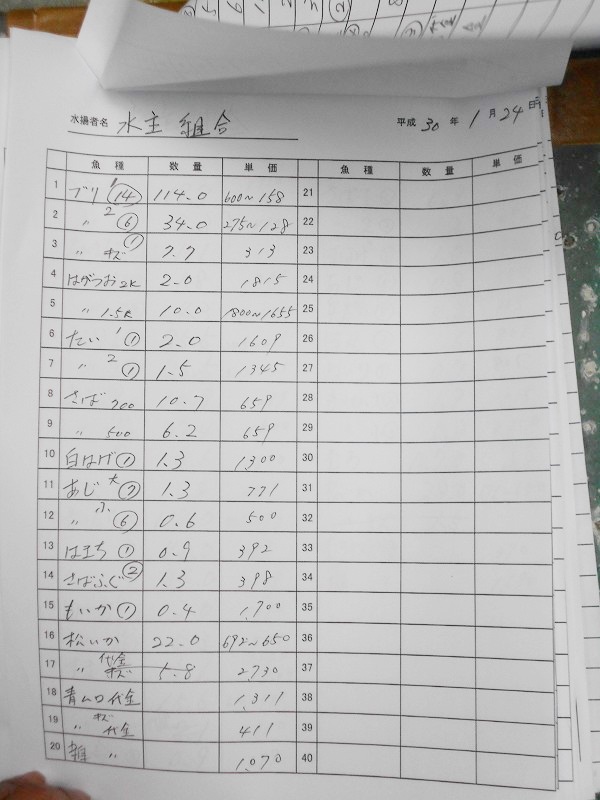 水揚者名 水主 組合
平成 30 年 1 月 24 日
魚種 数量 単価 魚種 数量 単価
1 ブリ 1 ⑭ 114.0 600~158 21
2 〃 2 ⑥ 34.0 275~128 22
3 〃 キズ ① 7.7 313 23
4 はがつお 2K 2.0 1815 24
5 〃 1.5K 10.0 1800~1655 25
6 たい 1 ① 2.0 1609 26
7 〃 2 ① 1.5 1345 27
8 さば 700 10.7 659 28
9 〃 500 6.2 659 29
10 白はげ ① 1.3 1300 30
11 あじ 大 ⑦ 1.3 771 31
12 〃 小 ⑥ 0.6 500 32
13 はまち ① 0.9 392 33
14 さばふぐ ② 1.3 398 34
15 もいか ① 0.4 1,700 35
16 松いか 22.0 692~650 36
17 〃 代金 キズ 5.8 2730 37
18 青ムロ代金 1,311 38
19 〃 キズ 代金 411 39
20 雑 〃 1,070 40